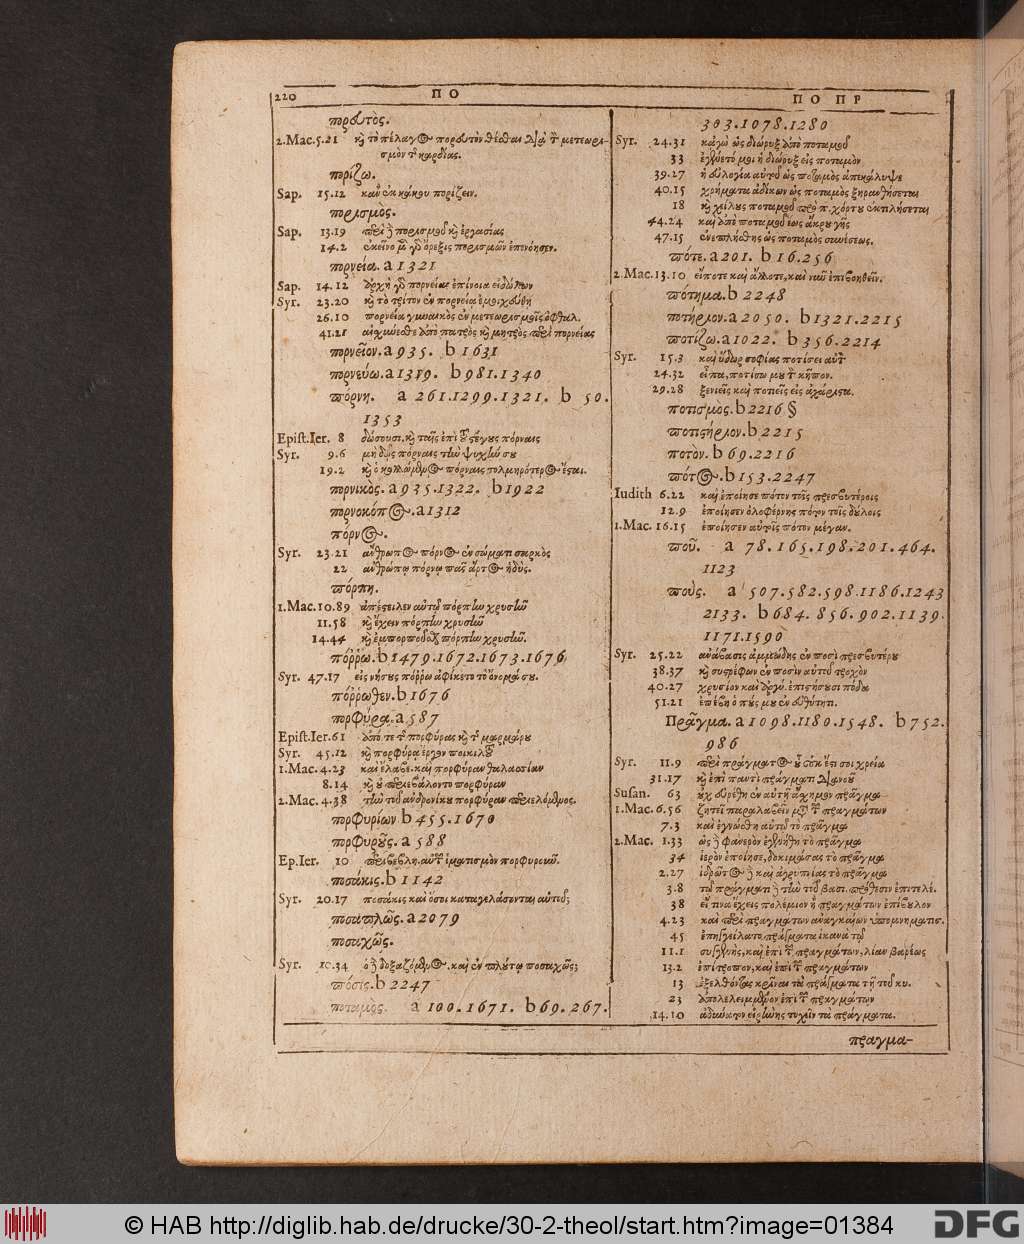 220 ΠΟ
ΠΟ ΠΡ
πορευτὸς.
2.Mac.5.21 καὶ τὸ πέλαγος πορευτὸν θέσθαι διὰ τ μετεωρι-
σμὸν τ καρδίας.
πορίζω.
Sap. 15.12 κἂν ἐκ κακου πορίζειν.
πορισμὸς.
Sap. 13.19 περὶ δὲ πορισμοῦ καὶ ἐργασίας
14.2 ἐκεῖνο μὲν γὰρ ὄρεξις πορισμῶν ἐπενόησεν.
πορνεία. a 1321
Sap. 14.12 ἀρχὴ γὰρ πορνείας ἐπίνοια εἰδώλων
Syr. 23.20 καὶ τὸ τρίτον ἐν πορνείᾳ ἐμοιχεύθη
26.10 πορνεία γυναικὸς ἐν μετεωρισμοῖς ὀφθαλ.
41.21 αἰσχύνεσθε ἀπὸ πατρὸς καὶ μητρὸς περὶ πορνείας
πορνεῖον. a 935. b 1631
πορνεύω. a 1319. b 981.1340
πόρνη. a 261.1299.1321. b 50.
1353
Epist.Ier. 8 δώσουσι. καὶ ταῖς ἐπὶ τοῦ στέγους πόρναις
Syr. 9.6 μὴ δῷς πόρναις τὴν ψυχήν σου
19.2 καὶ ὁ κολλώμενος πόρναις τολμηρότερος ἔσται.
πορνικὸς. a 935.1322. b 1922
πορνοκόπος. a 1312
πόρνος.
Syr. 23.21 ἄνθρωπος πόρνος ἐν σώματι σαρκὸς
22 ἀνθρώπῳ πόρνῳ πᾶς ἄρτος ἡδὺς.
πόρπη.
1.Mac.10.89 ἀπέστειλεν αὐτῷ πόρπην χρυσῆν
11.58 καὶ ἔχειν πόρπην χρυσῆν
14.44 καὶ ἐμπορποῦσθαι πόρπην χρυσῆν.
πόῤῥω. b 1479.1672.1673.1676
Syr. 47.17 εἰς νήσους πόῤῥω ἀφίκετο τὸ ὄνομά σου.
πόῤῥωθεν. b 1676
πορφύρα. a 587
Epist.Ier.61 ἀπό τε τ πορφύρας καὶ τ μαρμάρου
Syr. 45.12 καὶ πορφύρᾳ ἔργον ποικιλτοῦ
1.Mac.4.23 καὶ ἔλαβε. καὶ πορφύραν θαλασσίαν
8.14 καὶ οὐ περιεβάλοντο πορφύραν
2.Mac.4.38 τὴν τοῦ ἀνδρονίκου πορφύραν περιελόμενος.
πορφυρίων b 455.1670
πορφυροῦς. a 588
Ep.Ier. 10 περιβέβλη. αὐτῶν ἱματισμὸν πορφυροῦν.
ποσάκις. b 1142
Syr. 20.17 ποσάκις καὶ ὅσοι καταγελάσονται αὐτοῦ;
ποσαπλῶς. a 2079
ποσαχῶς.
Syr. 10.34 ὁ δὲ δοξαζόμενος. καὶ ἐν πλούτῳ ποσαχῶς;
πόσις. b 2247
ποταμὸς. a 100.1671. b 69.267.
303.1078.1280
Syr. 24.31 κἀγὼ ὡς διώρυξ ἀπὸ ποταμοῦ
33 ἐγένετό μοι ἡ διώρυξ εἰς ποταμὸν
39.27 ἡ εὐλογία αὐτοῦ ὡς ποταμὸς ἀπεκάλυψε
40.15 χρήματα ἀδίκων ὡς ποταμὸς ξηρανθήσεται
18 καὶ χείλους ποταμοῦ πρὸ π. χόρτου ἐκτιλήσεται
44.24 καὶ ἀπὸ ποταμοῦ ἕως ἄκρου γῆς
47.15 ἐνεπλήσθης ὡς ποταμὸς συνέσεως.
πότε. a 201. b 16.256
2.Mac.13.10 εἴποτε καὶ ἄλλοτε, καὶ νῦν ἐπιβοηθεῖν.
πότημα. b 2248
ποτήριον. a 2050. b 1321.2215
ποτίζω. a 1022. b 356.2214
Syr. 15.3 καὶ ὕδωρ σοφίας ποτίσει αὐτ
24.32 εἶπα, ποτίσω μου τ κῆπον.
29.28 ξενιεῖς καὶ ποτιεῖς εἰς ἀχάριστα.
ποτισμὸς. b 2216 §
ποτιστήριον. b 2215
ποτὸν. b 69.2216
πότος. b 153.2247
Iudith 6.22 καὶ ἐποίησε πότον τοῖς πρεσβυτέροις
12.9 ἐποίησεν ὀλοφέρνης πότον τοῖς δούλοις
1.Mac. 16.15 ἐποίησεν αὐτοῖς πότον μέγαν.
ποῦ. a 78.165.198.201.464.
1123
ποὺς. a 507.582.598.1186.1243
2133. b 684.856.902.1139.
1171.1590
Syr. 25.22 ἀνάβασις ἀμμώδης ἐν ποσὶ πρεσβυτέρου
38.37 καὶ συστρέφων ἐν ποσὶν αὐτοῦ τροχὸν
40.27 χρυσίον καὶ ἀργύ. ἐπιστήσουσι πόδα
51.21 ἐπέβη ὁ πούς μου ἐν εὐθύτητι.
Πρᾶγμα. a 1098.1180.1548. b 752.
986
Syr. 11.9 περὶ πράγματος οὗ οὐκ ἔστι σοι χρεία
31.17 καὶ ἐπὶ παντὶ πράγματι διανοοῦ
Susan. 63 οὐχ εὑρέθη ἐν αὐτῇ ἄσχημον πρᾶγμα
1.Mac.6.56 ζητεῖ παραλαβεῖν τὰ τῶν πραγμάτων
7.3 καὶ ἐγνώσθη αὐτῷ τὸ πρᾶγμα
2.Mac. 1.33 ὡς δὲ φανερὸν ἐγενήθη τὸ πρᾶγμα
34 ἱερὸν ἐποίησε, δοκιμάσας τὸ πρᾶγμα
2.27 ἱδρῶτος δὲ καὶ ἀγρυπνίας τὸ πρᾶγμα
3.8 τῷ πράγματι δὲ τὴν τοῦ βασι. πρόθεσιν ἐπιτελέ.
38 εἴ τινα ἔχεις πολέμιον ἢ πραγμάτων ἐπίβουλον
4.23 καὶ περὶ πραγμάτων ἀναγκαίων ὑπομνηματισ.
45 ἐπηγγείλατο πράγματα ἱκανὰ τῷ
11.1 συγγενὴς, καὶ ἐπὶ τῶν πραγμάτων, λίαν βαρέως
13.2 ἐπίτροπον, καὶ ἐπὶ τῶν πραγμάτων
13 ἐξελθόντας κρῖναι τὰ πράγματα τῇ τοῦ κυ.
23 ἀπολελειμμένον ἐπὶ τῶν πραγμάτων
14.10 ἀδύνατον εἰρήνης τυχεῖν τὰ πράγματα.
πραγμα-
© HAB http://diglib.hab.de/drucke/30-2-theol/start.htm?image=01384
DFG